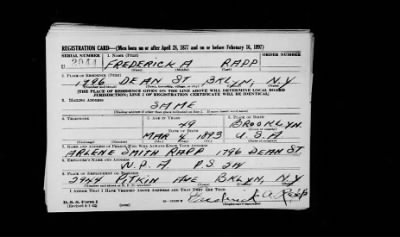 REGISTRATION CARD—(Men born on or after April 28, 1877 and on or before February 16, 1897)
SERIAL NUMBER 1. NAME (Print) ORDER NUMBER
U 2044 FREDERICK A RAPP
(First) (Middle) (Last)
2. PLACE OF RESIDENCE (Print)
1796 DEAN ST BKLYN, N.Y
(Number and street) (Town, township, village, or city) (County) (State)
[THE PLACE OF RESIDENCE GIVEN ON THE LINE ABOVE WILL DETERMINE LOCAL BOARD
JURISDICTION; LINE 2 OF REGISTRATION CERTIFICATE WILL BE IDENTICAL]
3. MAILING ADDRESS
SAME
4. TELEPHONE 5. AGE IN YEARS 6. PLACE OF BIRTH
49 BROOKLYN
DATE OF BIRTH
MAR 4 1893 U.S.A
7. NAME AND ADDRESS OF PERSON WHO WILL ALWAYS KNOW YOUR ADDRESS
ARLENE SMITH RAPP 1796 DEAN ST
8. EMPLOYER'S NAME AND ADDRESS
W.P.A
9. PLACE OF EMPLOYMENT OR BUSINESS
2944 PITKIN AVE BKLYN, N.Y
I AFFIRM THAT I HAVE VERIFIED ABOVE ANSWERS AND THAT THEY ARE TRUE.
D.S.S. Form 1
Frederick A. Rapp